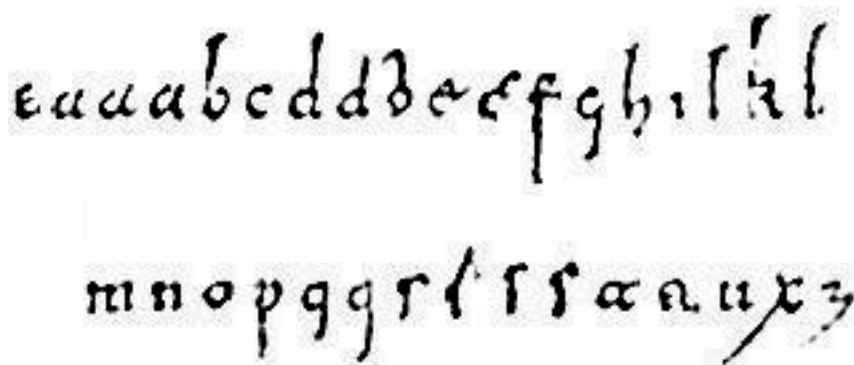 a a a a b c d d d e e f g h i i k l
m n o p q q r r s s t t u x z